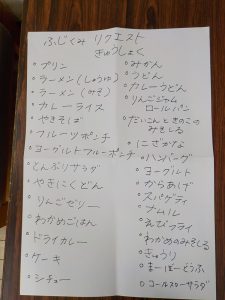 ふじぐみ リクエスト
きゅうしょく
○プリン
○ラーメン(しょうゆ)
○ラーメン(みそ)
○カレーライス
○やきそば
○フルーツポンチ
○ヨーグルトフルーツポンチ
○とんぶりサラダ
○やきにくどん
○りんごゼリー
○わかめごはん
○ドライカレー
○ケーキ
○シチュー
○みかん
○うどん
○カレーうどん
○りんごジャム
ロールパン
○だいこんときのこの
みそしる
○にざかな
○ハンバーグ
○ヨーグルト
○からあげ
○スパゲティ
○ナムル
○えびフライ
○わかめのみそしる
○きゅうり
○まーぼーどうふ
○コールスローサラダ